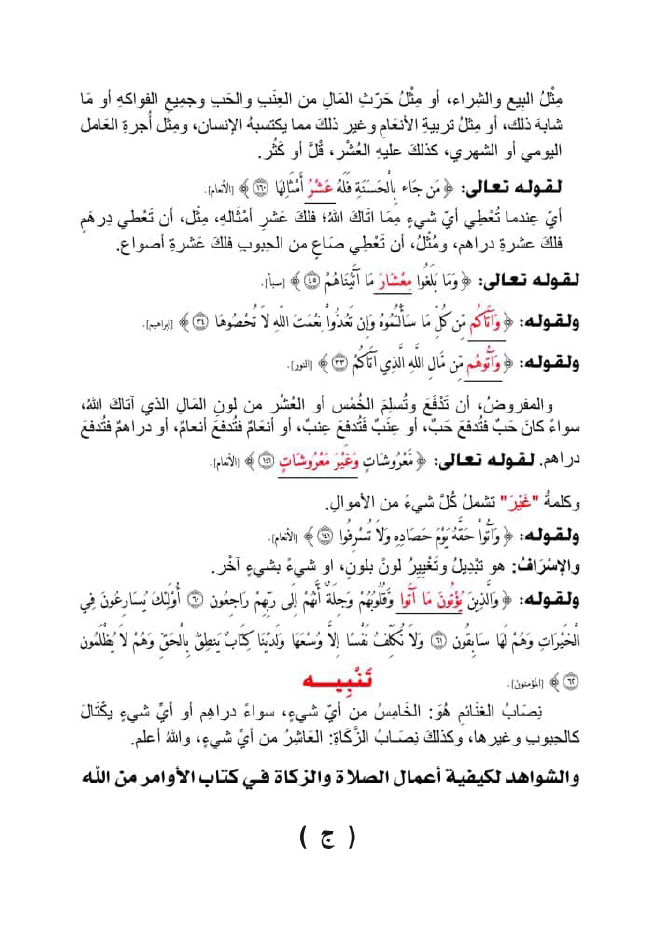 مِثْلُ البِيع والشِراء، أو مِثْلُ حَرْثِ المَالِ من العِنَبِ والحَبِ وجميعِ الفواكهِ أو مَا
شابهَ ذلك، أو مِثلُ تربيةِ الأنعَامِ وغير ذلكَ مما يكتسبهُ الإنسان، ومِثل أُجرةِ العَامل
اليومي أو الشهري، كذلكَ عليهِ العُشْر، قُلَّ أو كَثُر.
لقوله تعالى: ﴿ مَن جَاء بِالْحَسَنَةِ فَلَهُ عَشْرُ أَمْثَالِهَا ﴿١٦٠﴾ ﴾ [الأنعام].
أيّ عِندما تُعْطِي أيّ شيءٍ مِمَا اتَاكَ اللهُ؛ فلكَ عَشرِ أمْثالهِ، مِثل، أن تَعْطي دِرهَمٍ
فلكَ عشرةِ دراهم، ومُثْلُ، أن تَعْطِي صَاعٍ من الحِبوبِ فلكَ عَشَرةِ أصواع.
لقوله تعالى: ﴿ وَمَا بَلَغُوا مِعْشَارَ مَا آتَيْنَاهُمْ ﴿٤٥﴾ ﴾ [سبأ].
ولقوله: ﴿ وَآتَاكُم مِّن كُلِّ مَا سَأَلْتُمُوهُ وَإِن تَعُدُّواْ نِعْمَتَ اللّهِ لاَ تُحْصُوهَا ﴿٣٤﴾ ﴾ [إبراهيم].
ولقوله: ﴿ وَآتُوهُم مِّن مَّالِ اللَّهِ الَّذِي آتَاكُمْ ﴿٣٣﴾ ﴾ [النور].
والمفروضُ، أن تَدْفَعَ وتُسلِمَ الخُمْس أو العُشْر من لونِ المَالِ الذي آتاكَ اللهُ،
سواءً كانَ حَبٌ فتُدفعَ حَبٌ، أو عِنَبٌ فَتُدفعَ عِنبٌ، أو أنعَامٌ فتُدفعَ أنعامٌ، أو دراهمٌ فتُدفعَ
دراهم. لقوله تعالى: ﴿ مَّعْرُوشَاتٍ وَغَيْرَ مَعْرُوشَاتٍ ﴿١٤١﴾ ﴾ [الأنعام].
وكلمةُ "غَيْرَ" تشملُ كُلَّ شيءً من الأموالِ.
ولقوله: ﴿ وَآتُواْ حَقَّهُ يَوْمَ حَصَادِهِ وَلاَ تُسْرِفُوا ﴿١٤١﴾ ﴾ [الأنعام].
والإسْرَافُ: هو تبْدِيلُ وتَغْييِرُ لونٌ بلونٍ، او شيءٌ بشيءٍ آخر.
ولقوله: ﴿ وَالَّذِينَ يُؤْتُونَ مَا آتَوا وَّقُلُوبُهُمْ وَجِلَةٌ أَنَّهُمْ إِلَى رَبِّهِمْ رَاجِعُونَ ﴿٦٠﴾ أُوْلَئِكَ يُسَارِعُونَ فِي
الْخَيْرَاتِ وَهُمْ لَهَا سَابِقُونَ ﴿٦١﴾ وَلَا نُكَلِّفُ نَفْسًا إِلَّا وُسْعَهَا وَلَدَيْنَا كِتَابٌ يَنطِقُ بِالْحَقِّ وَهُمْ لَا يُظْلَمُونَ
﴿٦٢﴾ ﴾ [المؤمنون].
تَنْبِيـــه
نِصَابُ الغَنَائمِ هُوَ: الخَامِسُ من أيّ شيءٍ، سواءً دراهِم أو أيِّ شيءٍ يكْتَالَ
كالحِبوبِ وغيرِها، وكذلكَ نِصَابُ الزَّكَاةِ: العَاشِرُ من أيّ شيءٍ، واللهُ أعلم.
والشواهد لكيفية أعمال الصلاة والزكاة في كتاب الأوامر من الله
( ج )